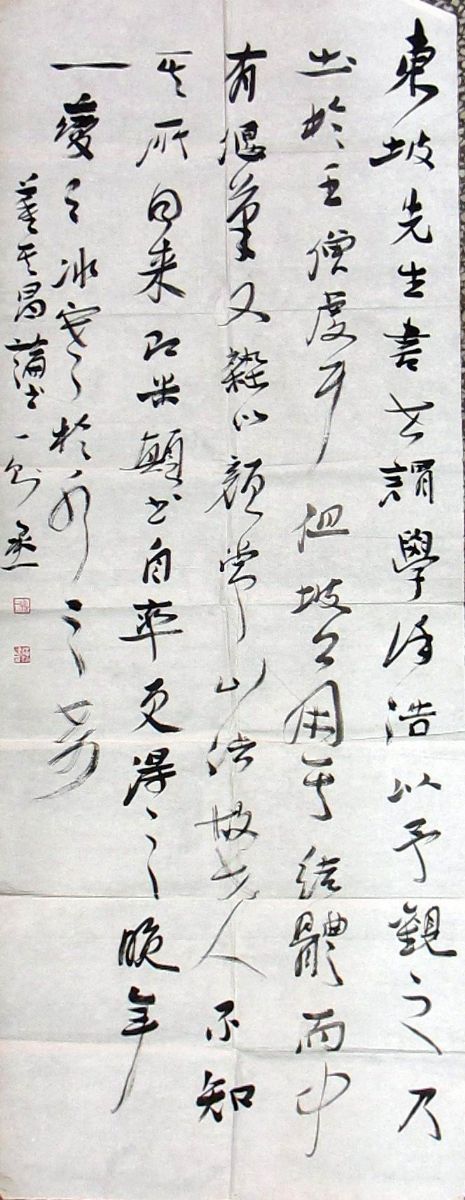 東坡先生書世謂學徐浩以予觀之乃
出於王僧虔耳但坡公用其結體而中
有偃筆又雜以顏常山法故世人不知
其所自来即米顛書自率更得之晚年
一變之冰寒於水之奇
董其昌